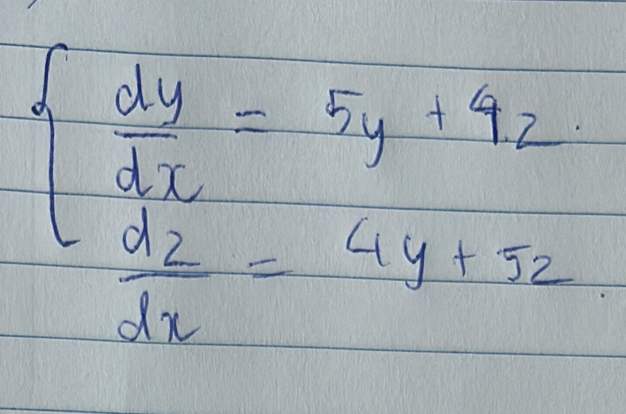 dy/dx = 5y + 4z.
dz/dx = 4y + 5z.